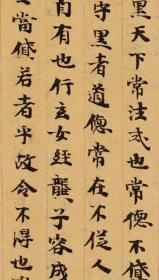 黑天下常法式也常德不貸
守黑者道德常在不從人
自有也行玄女經龔子容成
當貸若者乎故令不得也